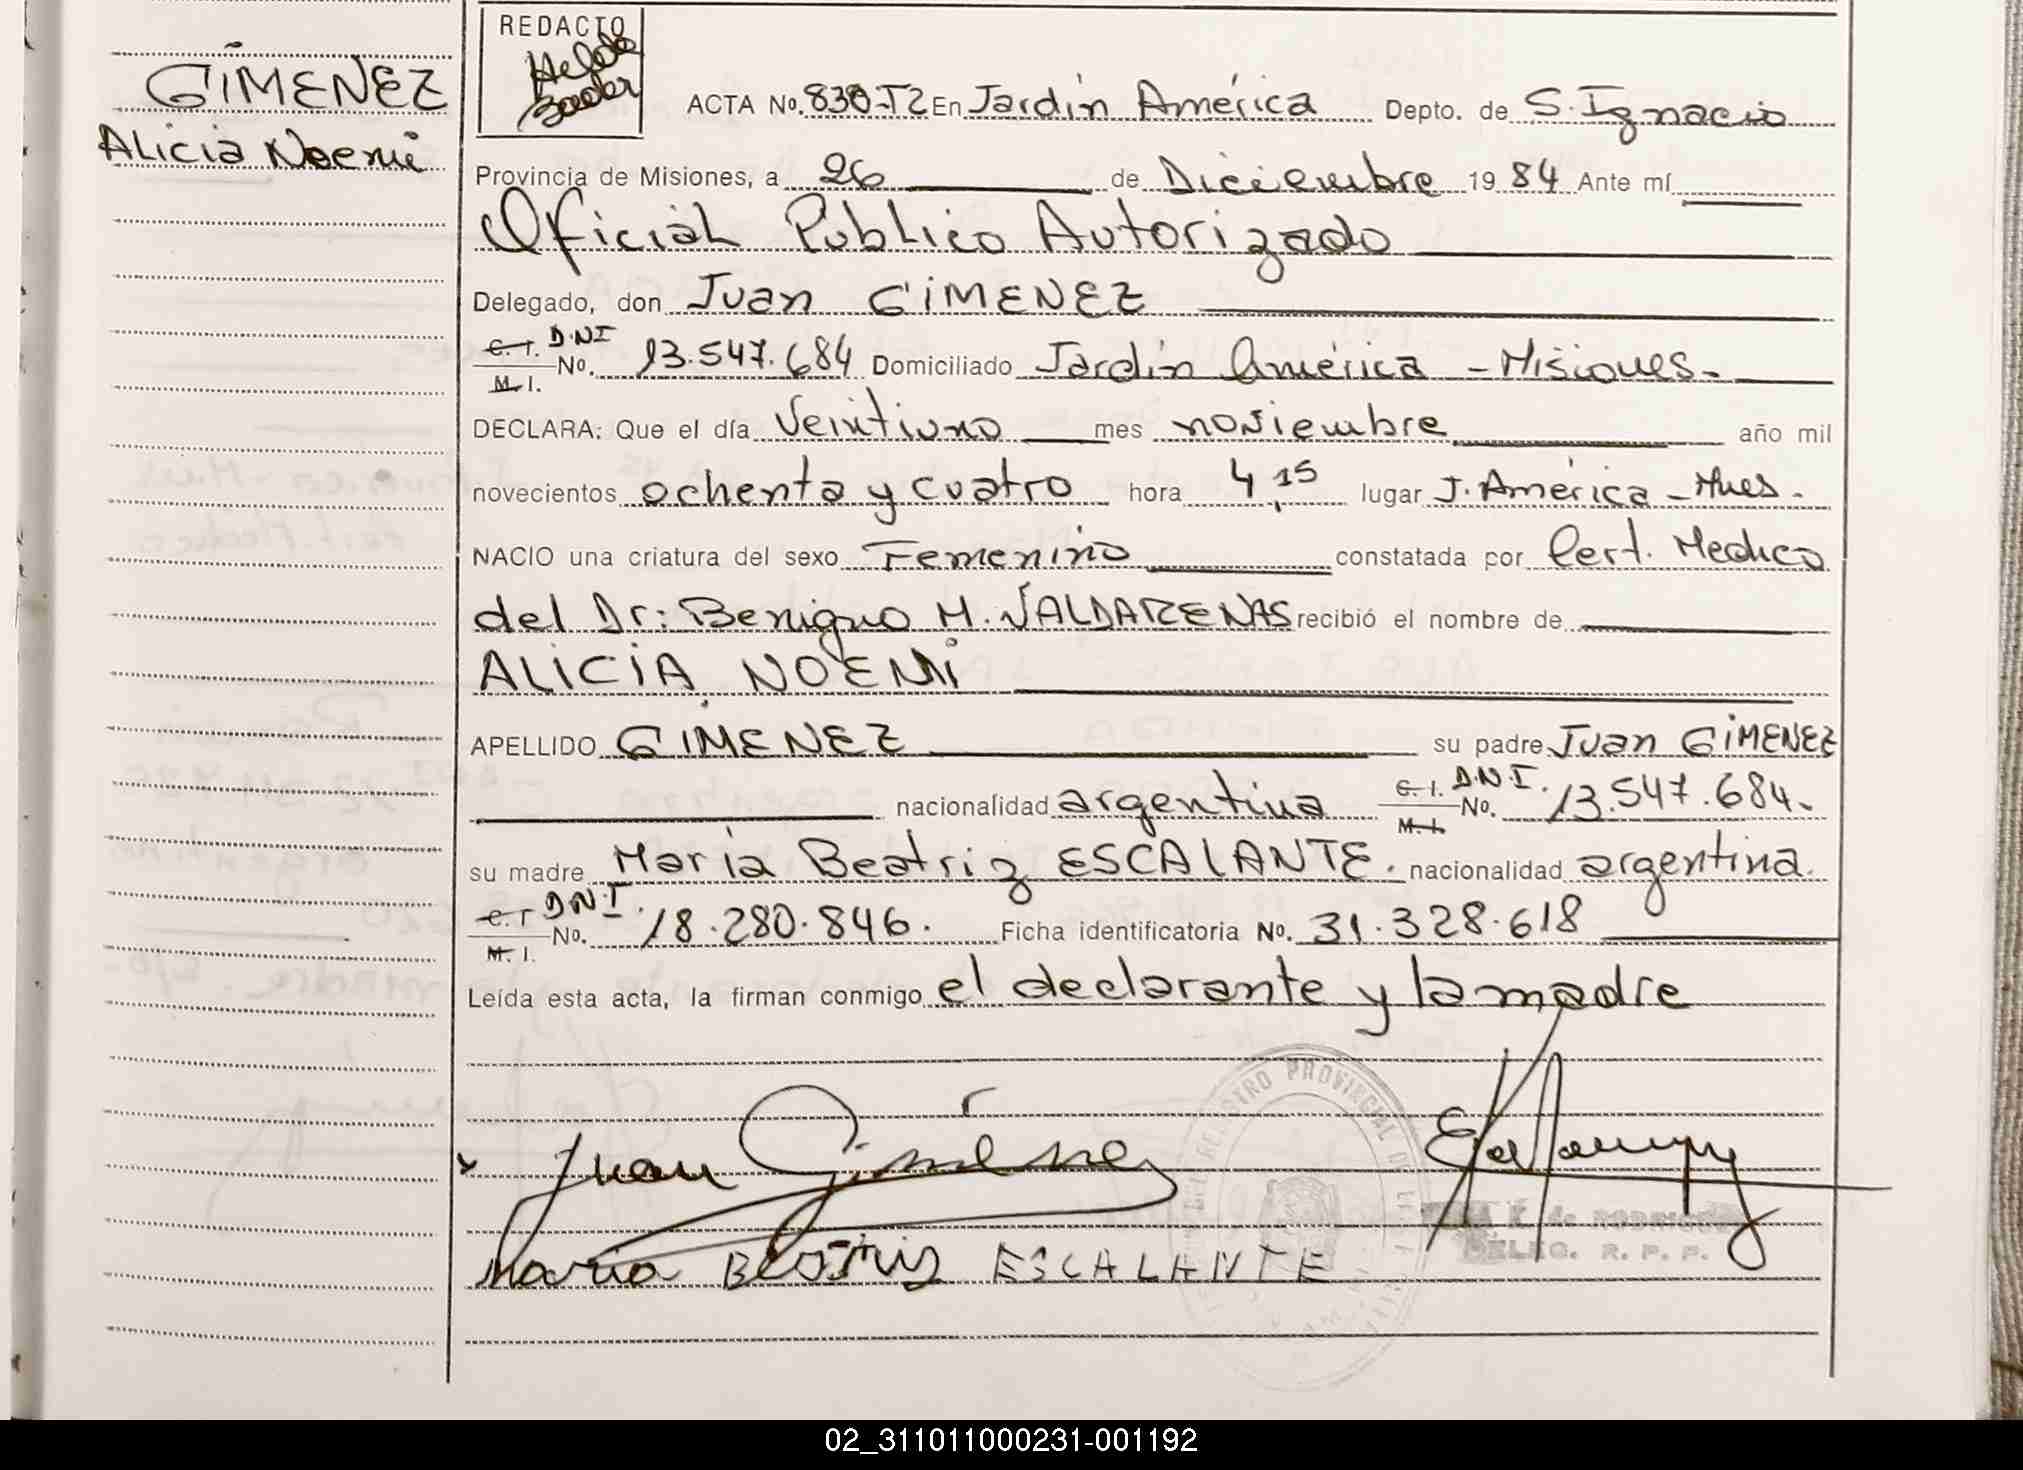 REDACTO
GIMENEZ
Alicia Noemi
ACTA No. 830-T2 En Jardín América Depto. de S. Ignacio
Provincia de Misiones, a 26 de Diciembre 1984 Ante mí
Oficial Publico Autorizado
Delegado, don Juan GIMENEZ
C. I. D.N.I
M. I. No. 13.547.684 Domiciliado Jardín América - Misiones -
DECLARA: Que el día Veintiuno mes noviembre año mil
novecientos ochenta y cuatro hora 4,15 lugar J. América - Mnes.
NACIO una criatura del sexo Femenino constatada por Cert. Medico
del Dr: Benigno M. VALDARENAS recibió el nombre de
ALICIA NOEMI
APELLIDO GIMENEZ su padre Juan GIMENEZ
nacionalidad argentina C. I. D.N.I. M. I. No. 13.547.684.
su madre María Beatriz ESCALANTE. nacionalidad argentina.
C. I D.N.I. M. I. No. 18.280.846. Ficha identificatoria No. 31.328.618
Leída esta acta, la firman conmigo el declarante y la madre
REGISTRO PROVINCIAL DE
Juan Gimenez
K. de RODRIGUEZ
DELEG. R. P. P.
Maria Beatriz ESCALANTE
02_311011000231-001192